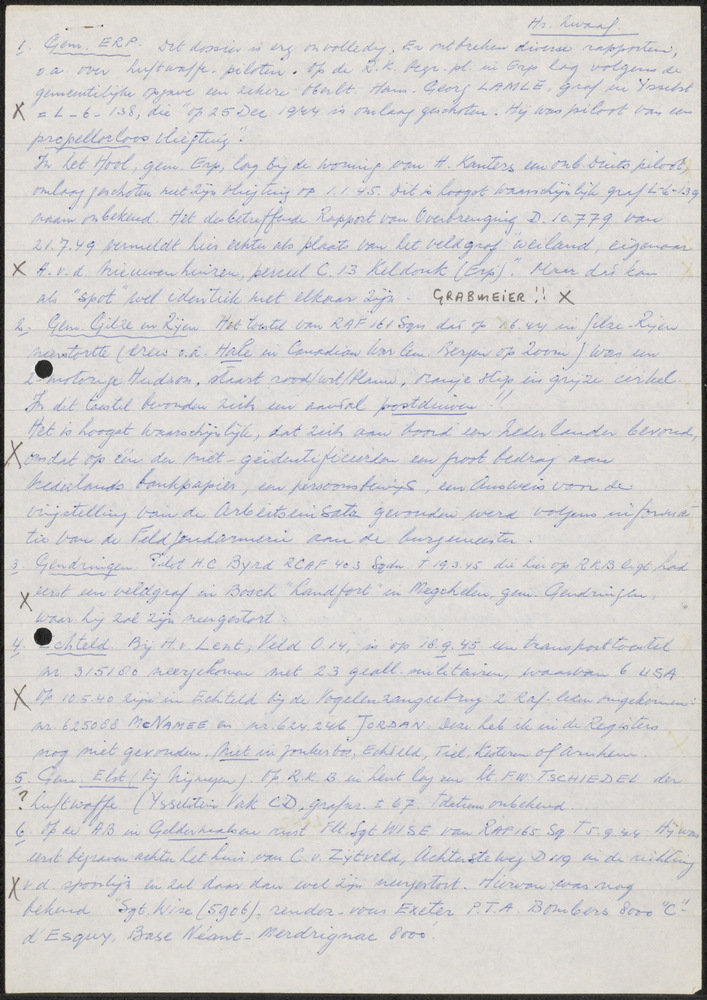 Hr. Zwaaf.
1. Gem. ERP. Dit dossier is erg onvolledig. Er ontbreken diverse rapporten,
o.a over Luftwaffe-piloten. Op de R.K. Begr. pl. in Erp lag volgens de
gemeentelijke opgave een zekere Oberlt. Hans. Georg LAMLE, graf in Ysselst
X = L-6-138, die "op 25 Dec 1944 is omlaag geschoten. Hij was piloot van een
propellorloos vliegtuig".
In het Hool, gem. Erp, lag bij de woning van H. Kanters een onb. Duits piloot,
omlaag geschoten met zijn vliegtuig op 1.1.45. Dit is hoogst waarschijnlijk graf L-6-139
naam onbekend. Het desbetreffende Rapport van Overbrenging D. 10.779 van
21.7.49 vermeldt hier echter als plaats van het veldgraf "weiland, eigenaar
X H. v.d. Nieuwenhuizen, perceel C. 13 Keldonk (Erp)". Maar dat kan
als "spot" wel identiek met elkaar zijn. GRABMEIER !! X
2. Gem. Gilze en Rijen. Het toestel van RAF 161 Sqn dat op 1.6.44 in Gilze-Rijen
neerstortte (crew o.a. Hale in Canadian War Cem. Bergen op Zoom) was een
2-motorige Hudson, staart rood/wit/blauw, oranje stip in grijze cirkel.
In dit toestel bevonden zich een aantal postduiven !!
Het is hoogst waarschijnlijk, dat zich aan boord een Nederlander bevond,
X omdat op één der niet-geïdentificeerden een groot bedrag aan
Nederlands bankpapier, een persoonsbewijs, een Ausweis voor de
vrijstelling van de Arbeitseinsatz gevonden werd volgens informa-
tie van de Feldgendarmerie aan de burgemeester.
3. Gendringen Pilot H.C Byrd RCAF 403 Sqdn. † 19.3.45 die hier op RKB ligt had
X eerst een veldgraf in Bosch "Landfort" in Megchelen, gem. Gendringen,
waar hij zal zijn neergestort.
4. Echteld. Bij H.v. Lent, Veld D.14, is op 18.9.45 een transporttoestel
nr 315180 neergekomen met 23 geall. militairen, waarvan 6 USA
X Op 10.5.40 zijn in Echteld bij de Vogelenzangsebrug 2 Raf-leden omgekomen:
nr. 625088 McNAMEE en nr. 624246 JORDAN. Deze heb ik in de Registers
nog niet gevonden. Niet in Jonkerbos, Echteld, Tiel, Kesteren of Arnhem.
5. Gem. Elst (bij Nijmegen). Op R.K. B in Lent lag een Lt. F.W. TSCHIEDEL der
? Luftwaffe (Ysselstein Vak CD, grafnr. ± 67 † datum onbekend
6. Op de AB in Geldermalsen rust Flt. Sgt WISE van RAF 165 Sq † 5.9.44. Hij was
eerst begraven achter het huis van C. v. Zijtveld, Achtersteweg D 119 in de richting
X v.d. spoorlijn en zal daar dan wel zijn neergestort. Hiervan was nog
bekend "Sgt. Wise (5906), rendez-vous Exeter P.T.A. Bombers 8000 "C"
d'Esquy, Base Néant-Merdrignac 8000".